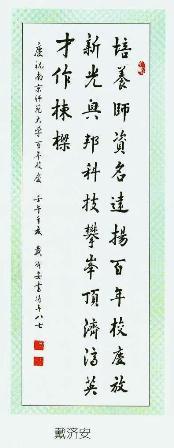 培養師資名遠揚百年校慶放
新光興邦科技攀峯頂濟濟英
才作棟樑
慶祝南京師范大學百年校慶 壬午辛亥 戴济安書時年八七
戴济安